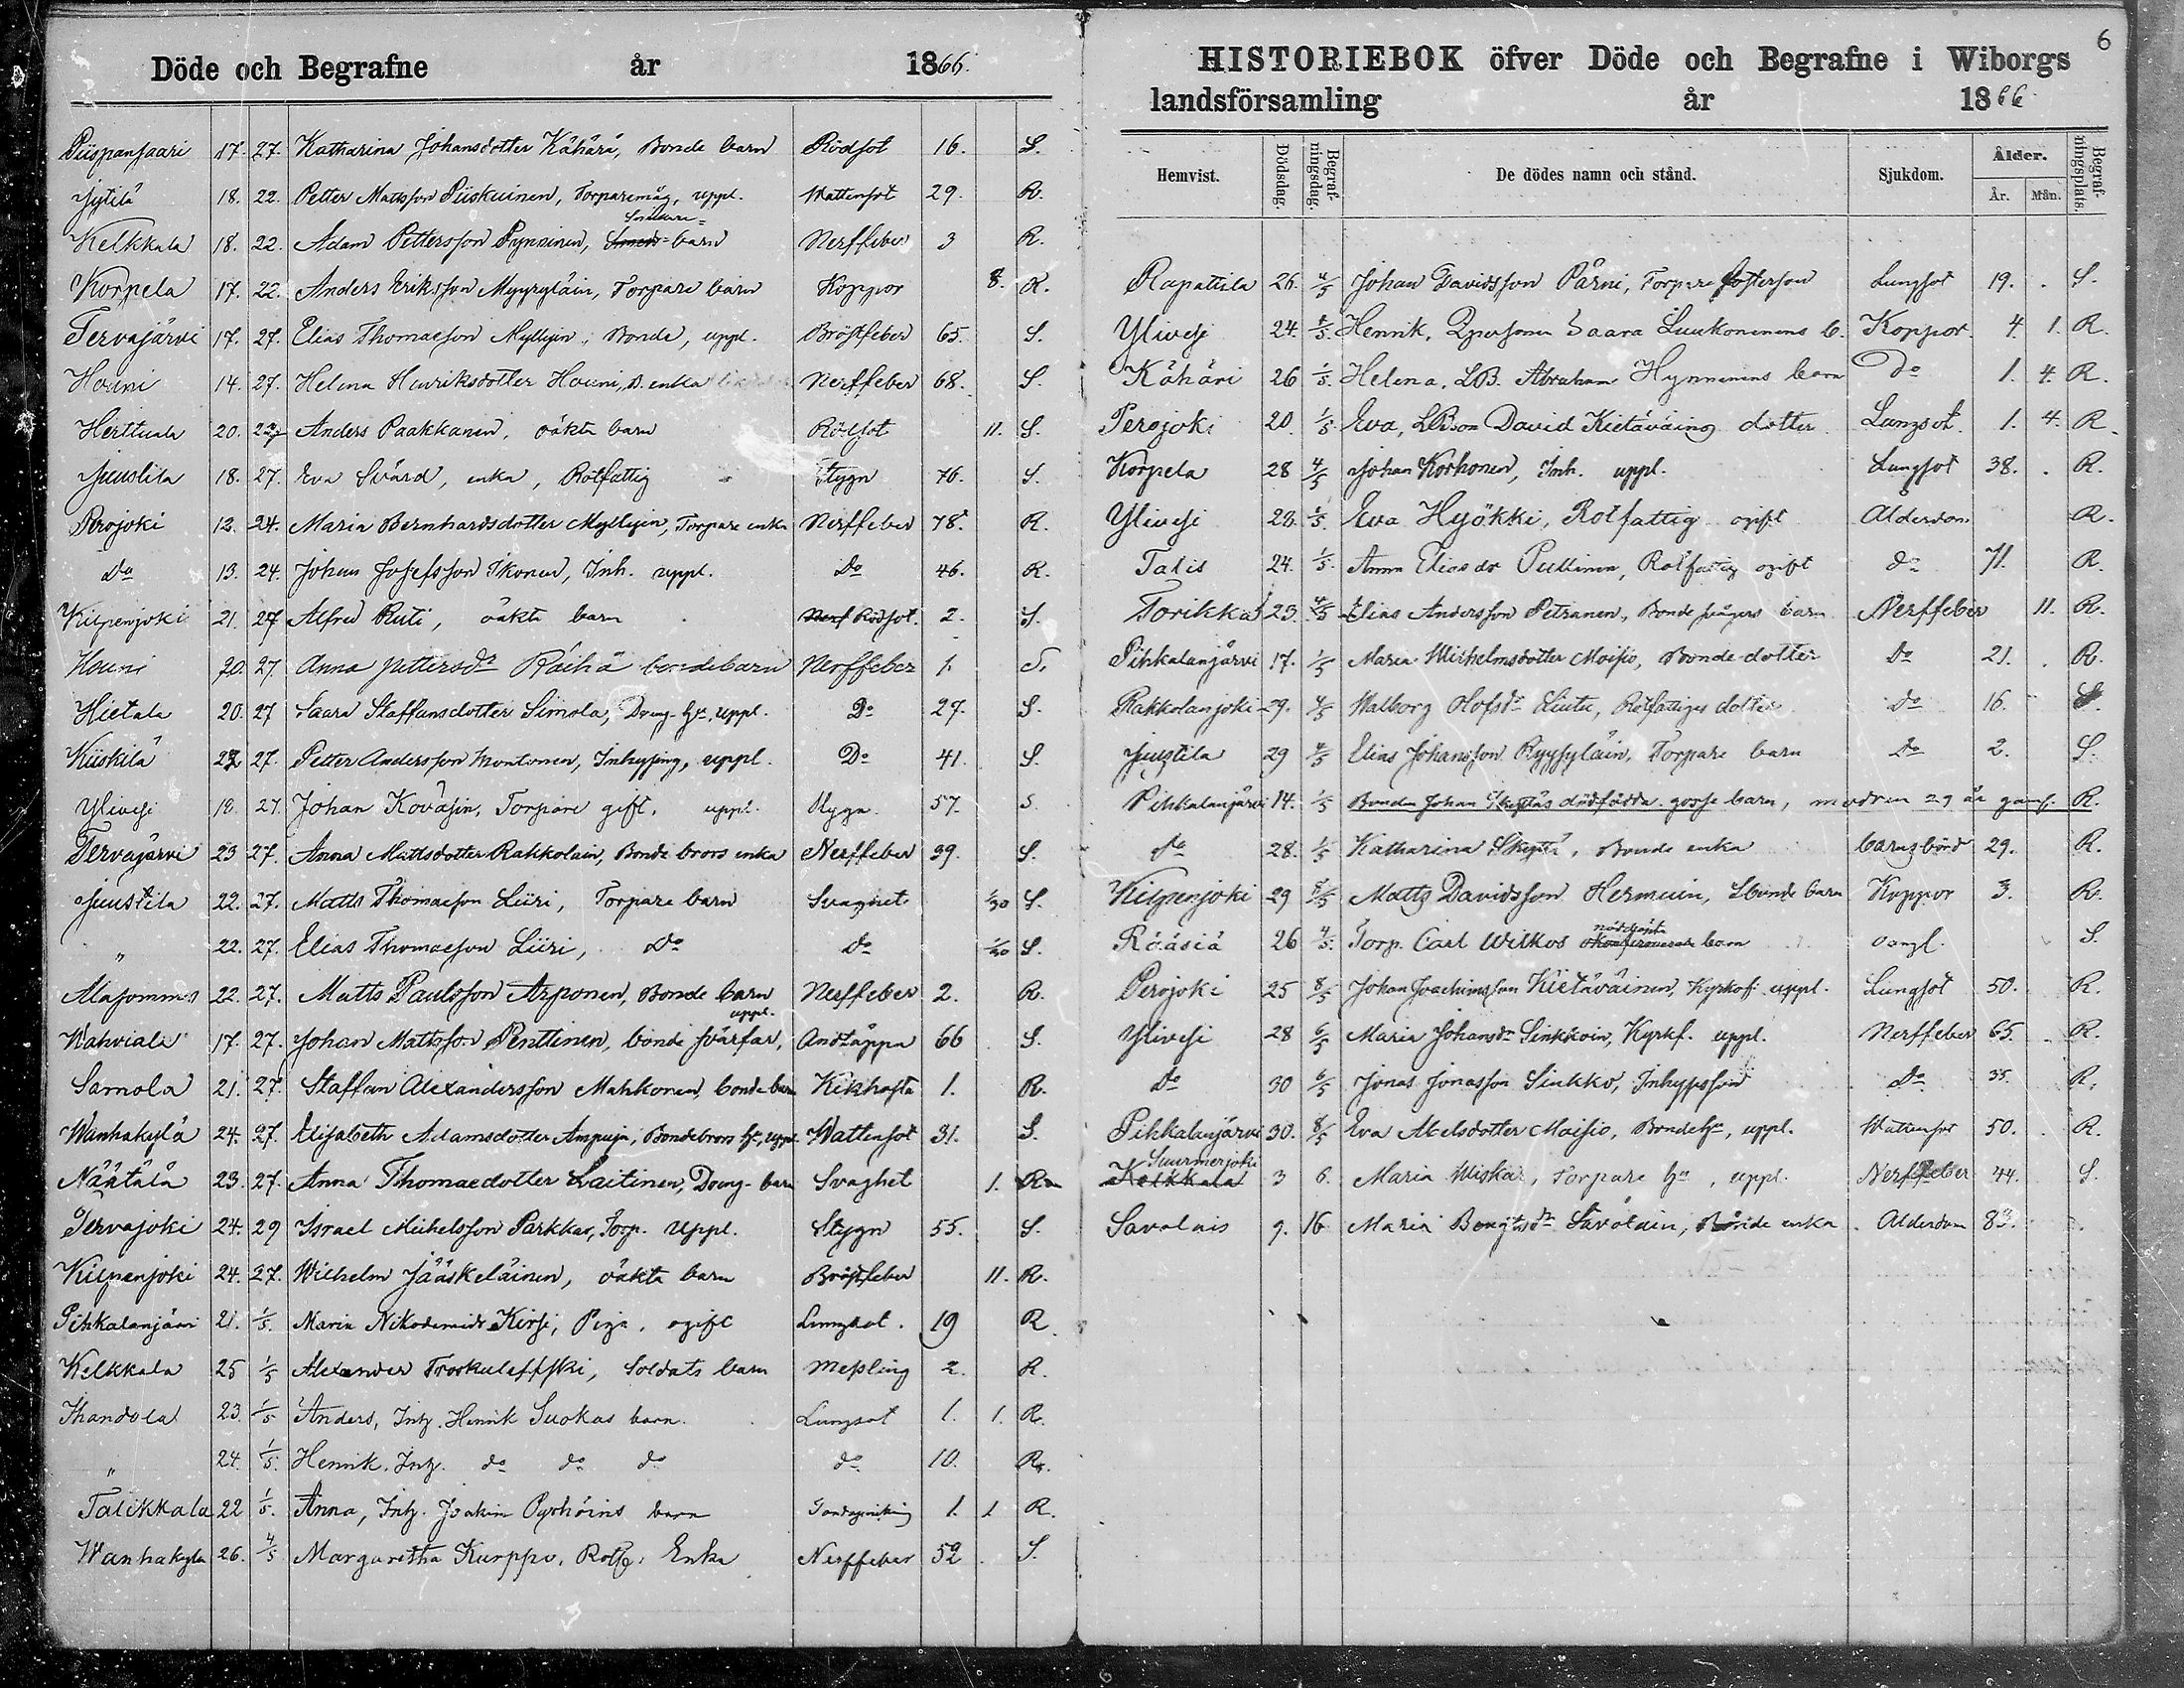 Döde och Begrafne år 1866.
Piispansaari 17. 27. Katharina Johansdotter Kähärä, Bonde barn Rödsot 16. S.
Jytilä 18. 22. Petter Mattsson Piiskuinen, Torparemåg, uppl. Wattensot 29. R.
Kelkkala 18. 22. Adam Pettersson Pynninen, barn Nerffeber 3 R.
Korpela 17. 22. Anders Eriksson Myyryläin, Torpare barn Koppor 8. R.
Tervajärvi 17. 27. Elias Thomasson Myllyin, Bonde, uppl. Bröstfeber 65. S.
Houni 14. 27. Helena Henriksdotter Houni, B. enka Nerffeber 68. S.
Herttuala 20. 27 Anders Paakkanen, oäkta barn Rödsot 11. S.
Juustila 18. 27. Eva Svärd, enka, Rotfattig Stygn 76. S.
Perojoki 12. 24. Maria Bernhardsdotter Myllyin, Torpare enka Nerffeber 78. R.
Do 13. 24. Johan Josefsson Ikonen, Inh. uppl. Do 46. R.
Kilpenjoki 21. 27 Alfred Ruti, oäkta barn Rödsot. 2. S.
Houni 20. 27. Anna pettersdr Räihä bondebarn Nerffeber 1. S.
Hietala 20. 27 Saara Staffansdotter Simola, Dreng hr, uppl. Do 27. S.
Kiiskilä 22 27. Petter Andersson Montonen, Inhysing, uppl. Do 41. S.
Ylivesi 18. 27. Johan Koväsin, Torpare gift, uppl. Stygn 57. S.
Tervajärvi 23 27. Anna Mattsdotter Rakkolain, Bonde brors enka Nerffeber 39. S.
Juustila 22. 27. Matts Thomasson Liiri, Torpare barn Svaghet 1/30 S.
" 22. 27. Elias Thomasson Liiri, do do 1/30 S.
Alasommes 22. 27. Matts Paulsson Arponen, Bonde barn Nerffeber 2. R.
Wahviala 17. 27. Johan Mattsson Penttinen, bonde svärfar, uppl. Andtäppa 66 S.
Samola 21. 27. Staffan Alexandersson Mahkonen, bonde barn Kikhosta 1. R.
Wanhakylä 24. 27. Elisabeth Adamsdotter Ampuja, Bondebrors hr, uppl. Wattensot 31. S.
Näätälä 23. 27. Anna Thomaedotter Laitinen, Dreng-barn Svaghet 1. R
Tervajoki 24. 29 Israel Michelsson Parkkas, Torp. uppl. Stygn 55. S.
Kilpenjoki 24. 27. Wilhelm Jääskeläinen, oäkta barn Bröstfeber 11. R.
Pihkalanjärvi 21. 1/5. Maria Nikodemidr Kirsi, Piga, ogift Lungsot. 19 R
Kelkkala 25 1/5 Alexander soldats barn Messling 2. R.
Ihandola 23. 1/5 Anders, Inh. Henrik Suokas barn. Lungsot 1. 1. R.
" 24. 1/5. Henrik, Inh. do do do do 10. R.
Talikkala 22 1/5. Anna, Inh. Joakim Pyrhöins barn 1. 1 R.
Wanhakyla 26. 4/5 Margaretha Kurppo, Rotfg. Enka Nerffeber 52 S.
6
HISTORIEBOK öfver Döde och Begrafne i Wiborgs
landsförsamling år 1866
Hemvist. Dödsdag. Begrafningsdag. De dödes namn och stånd. Sjukdom. Ålder. År. Mån. Begrafningsplats.
Rapattila 26. 4/5 Johan Davidsson Pärni, Torpare fosterson Lungsot 19. S.
Ylivesi 24. 1/5. Henrik, Saara Luukoninens b. Koppor. 4 1. R.
Kähäri 26 1/5. Helena, LB. Abraham Hynninens barn Do 1. 4. R.
Perojoki 20. 1/5. Eva, LBson David Kietäväing dotter Lungsot. 1. 4. R.
Korpela 28 4/5 Johan Korhonen, Inh. uppl. Lungsot 38. R.
Ylivesi 28. 1/5. Eva Hyökki, Rotfattig ogift Alderdom R.
Talis 24. 1/5. Anna Eliasdr Pullinen, Rotfattig ogift do 71. R.
Torikka 23. 4/5 Elias Andersson Petranen, Bonde barn Nerffeber 11. R.
Pihkalanjärvi 17. 1/5 Maria Wilhelmsdotter Moisio, Bonde dotter Do 21. R.
Rakkolanjoki 29. 4/5 Walborg Olofsdr Liutu, Rotfattiges dotter do 16. S.
Juustila 29 4/5 Elias Johansson Ryysyläin, Torpare barn Do 2. S.
Pihkalanjärvi 14. 1/5 Bonden Johan Skyttäs dödfödda gosse barn, modren 29 år gaml. R.
do 28. 1/5 Katharina Skyttä, Bonde enka barnsbörd 29. R.
Kilpenjoki 29 8/5 Matts Davidsson Hermuin, Bonde barn Koppor 3. R.
Rääsiä 26 4/5. Torp. Carl Wilkos nöddöpta barn oangl. S.
Perojoki 25 8/5 Johan Joachimsson Kietäväinen, Kyrkof. uppl. Lungsot 50. R.
Ylivesi 28 6/5 Maria Johansdr Sinkkoin, Kyrkf. uppl. Nerffeber 65. R.
Do 30 6/5 Jonas Jonasson Sinkko, Inhyses Do 35. R.
Pihkalanjärvi 30. 8/5 Eva Abelsdotter Moisio, Bondehr, uppl. Wattensot 50. R.
Suurmerjoki
Kelkkala 3 6. Maria Miskar, Torpare hr, uppl. Nerffeber 44. S.
Savolais 9. 16 Maria Bengtsdr Savolain, Bonde enka Alderdom 83.